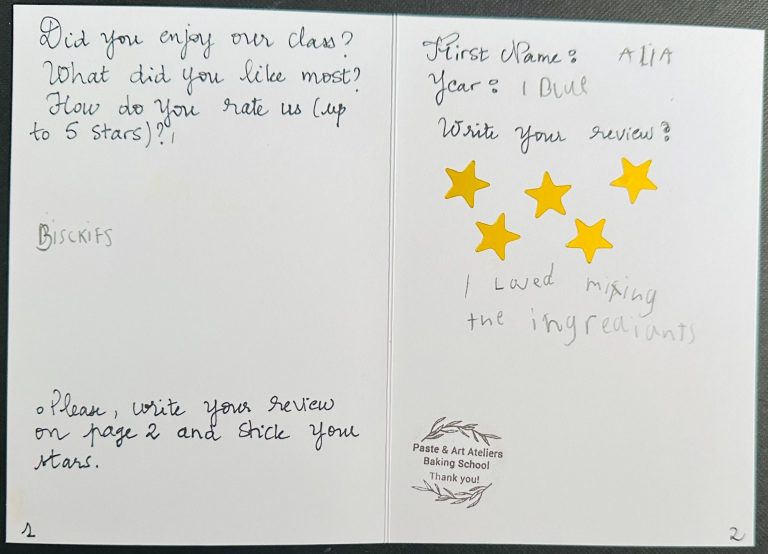 Did you enjoy our class?
What did you like most?
How do you rate us (up
to 5 stars)?
Bisckits
• Please, write your review
on page 2 and stick your
stars.
1
First Name: ALIA
Year: 1 Blue
Write your review?
I Loved mixing
the ingrediants
Paste & Art Ateliers
Baking School
Thank you!
2